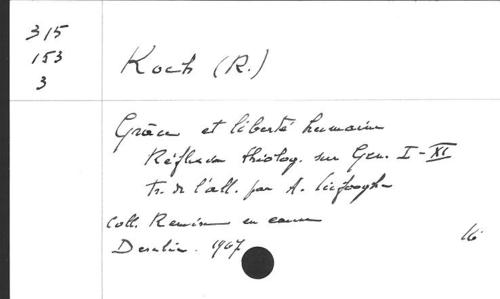 315
153
3
Koch (R.)
Grâce et liberté humaine
Réflexion théolog. sur Gen. I-XI
tr. de l'all. par A. Liefooghe
Coll. Remise en cause
Desclée. 1967
16